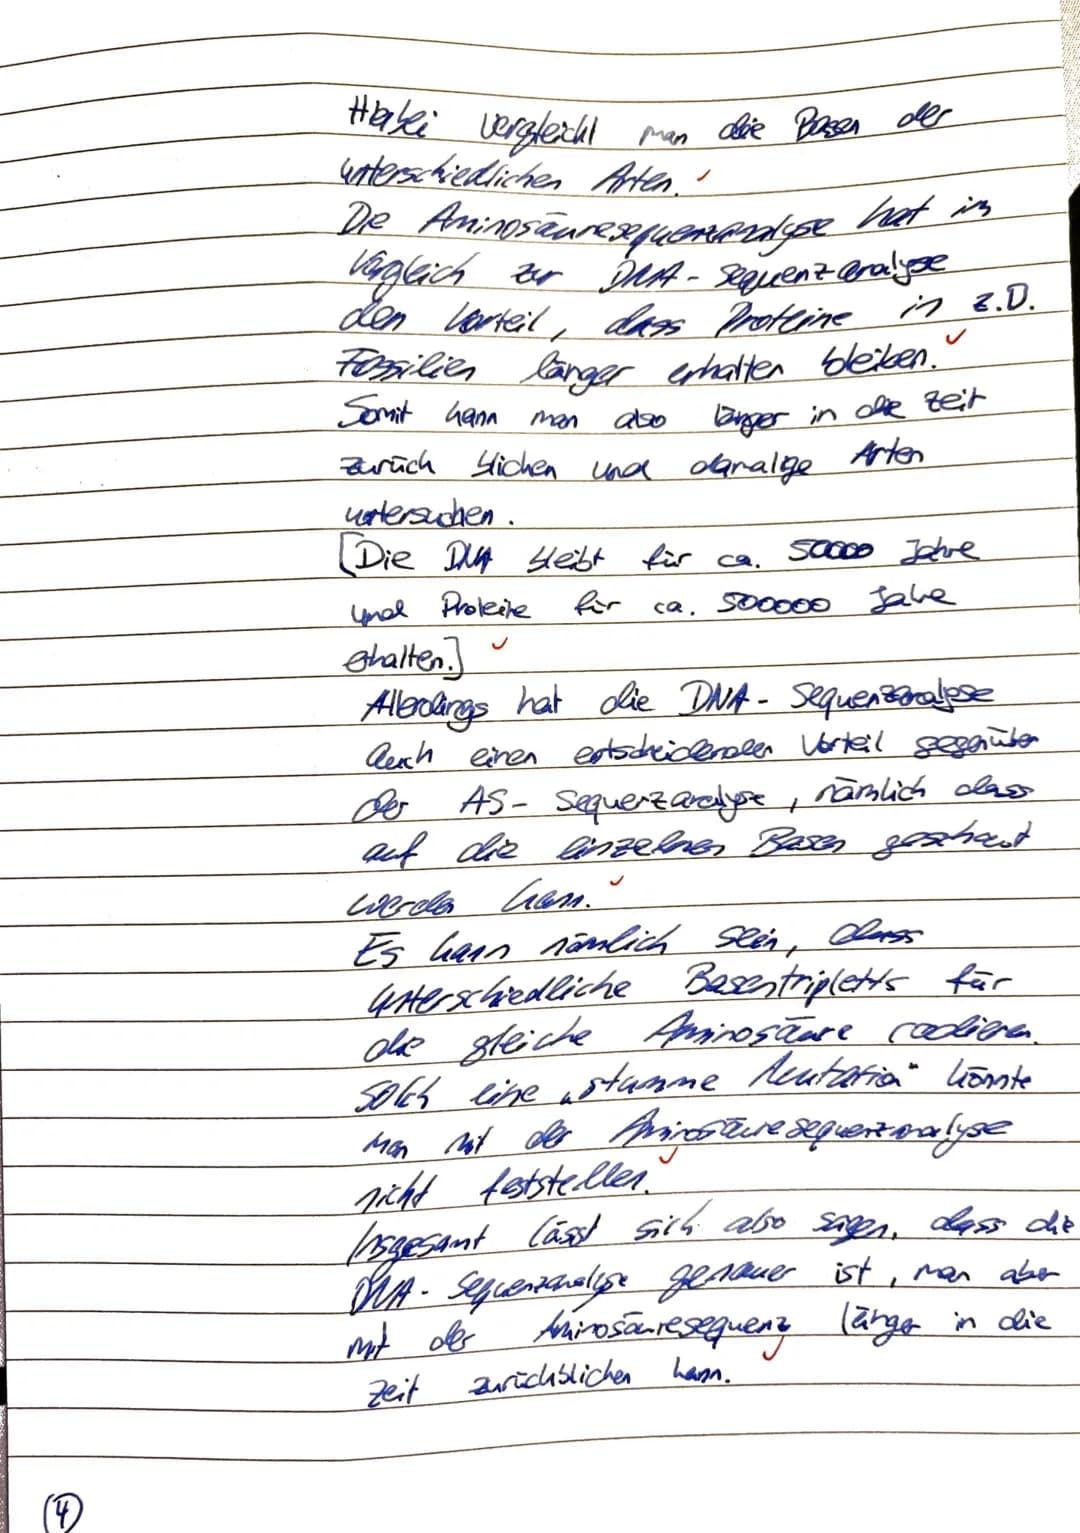 Hierbei vergleicht man die Basen der
unterschiedlichen Arten.
Die Aminosäuresequenzanalyse hat im
Vergleich zur DNA-Sequenzanalyse
den Vorteil, dass Proteine in z.B.
Fossilien länger erhalten bleiben.
Somit kann man also länger in die Zeit
zurück blicken und damalige Arten
untersuchen.
[Die DNA bleibt für ca. 50000 Jahre
und Proteine für ca. 500000 Jahre
erhalten.]
Allerdings hat die DNA-Sequenzanalyse
auch einen entscheidenden Vorteil gegenüber
der AS-Sequenzanalyse, nämlich dass
auf die einzelnen Basen geschaut
werden kann.
Es kann nämlich sein, dass
unterschiedliche Basentripletts für
die gleiche Aminosäure codieren.
Solch eine „stumme Mutation" könnte
man mit der Aminosäuresequenzanalyse
nicht feststellen.
Insgesamt lässt sich also sagen, dass die
DNA-Sequenzanalyse genauer ist, man aber
mit der Aminosäuresequenz länger in die
Zeit zurückblicken kann.
(4)